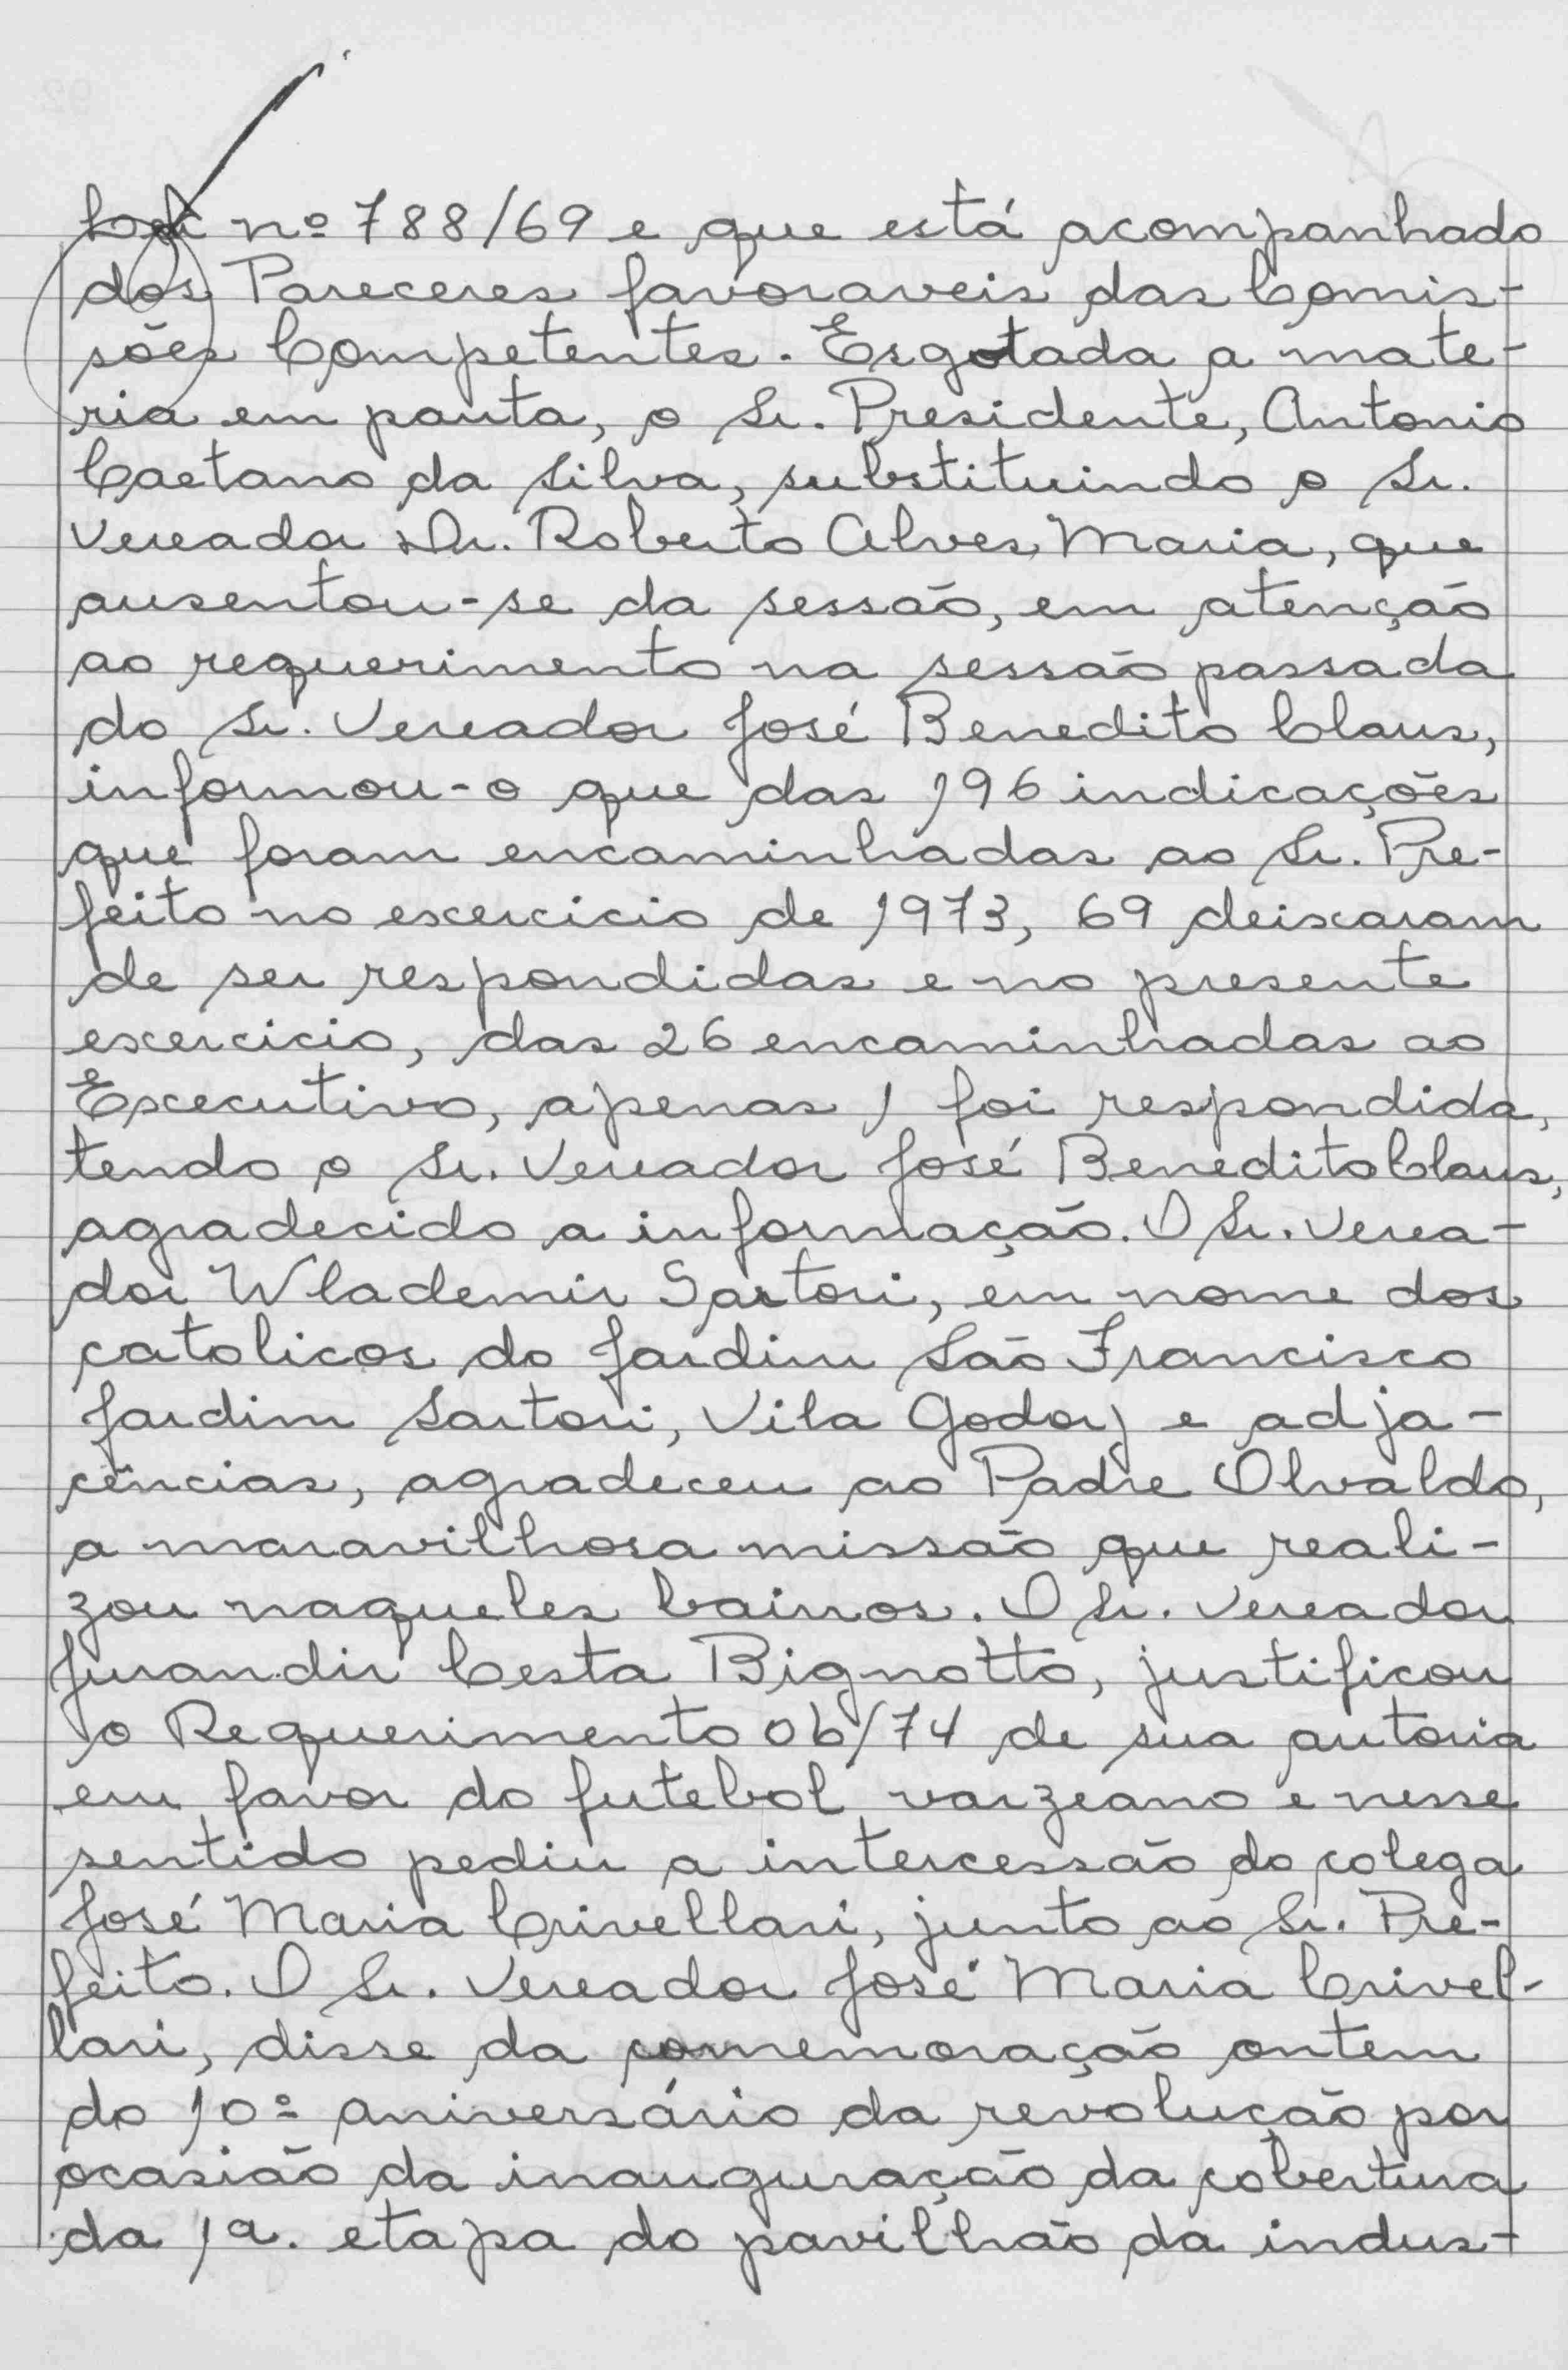 Lei nº 788/69 e que está acompanhado
dos Pareceres favoraveis das Comis-
sões Competentes. Esgotada a mate-
ria em pauta, o Sr. Presidente, Antonio
Caetano da Silva, substituindo o Sr.
Vereador Dr. Roberto Alves Maria, que
ausentou-se da sessão, em atenção
ao requerimento na sessão passada
do Sr. Vereador José Benedito Claus,
informou-o que das 196 indicações
que foram encaminhadas ao Sr. Pre-
feito no excercicio de 1973, 69 deixaram
de ser respondidas e no presente
excercicio, das 26 encaminhadas ao
Excecutivo, apenas 1 foi respondida,
tendo o Sr. Vereador José Benedito Claus,
agradecido a informação. O Sr. Verea-
dor Wlademir Sartori, em nome dos
catolicos do Jardim São Francisco
Jardim Sartori, Vila Godoy e adja-
cências, agradeceu ao Padre Olvaldo,
a maravilhosa missão que reali-
zou naqueles bairros. O Sr. Vereador
Jurandir Cesta Bignotto, justificou
o Requerimento 06/74 de sua autoria
em favor do futebol varzeano e nesse
sentido pediu a intercessão do colega
José Maria Crivellari, junto ao Sr. Pre-
feito. O Sr. Vereador José Maria Crivel-
lari, disse da comemoração ontem
do 10º aniversário da revolução por
ocasião da inauguração da cobertura
da 1ª. etapa do pavilhão da indus-